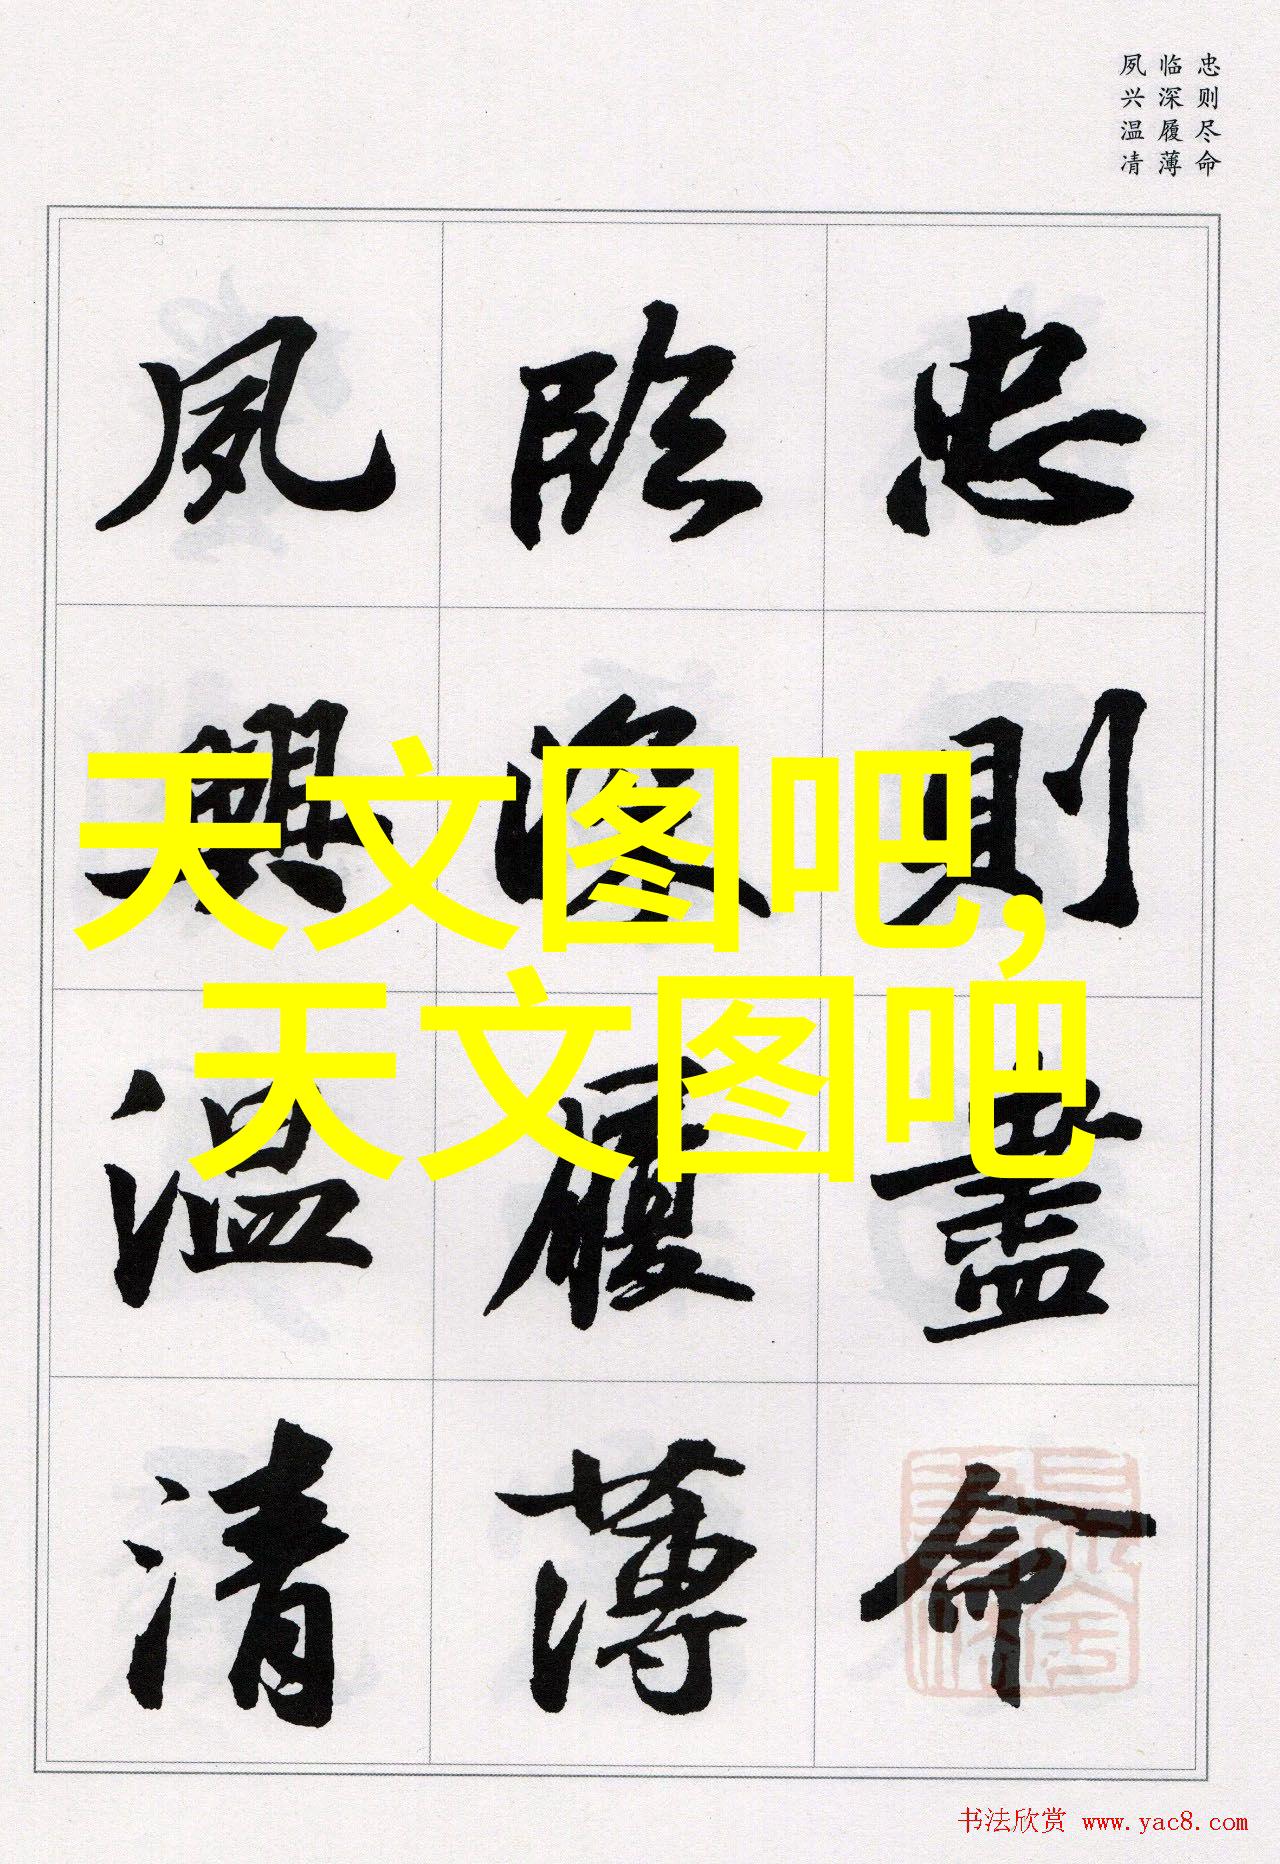 忠则尽命
临深履薄
夙兴温凊
忠則盡命
臨深履薄
夙興温清
天文图吧,
天文图吧
书法欣赏 www.yac8.com